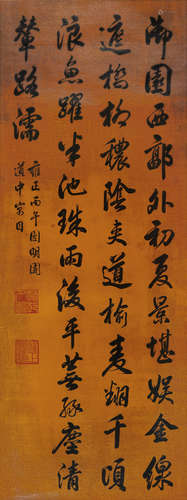 御園西郭外初夏景堪娛金線
遮橋柳穠陰夾道榆麦翻千頃
浪魚躍半池珠雨後平蕪綠塵清
輦路濡
雍正丙午圓明園
道中寓目